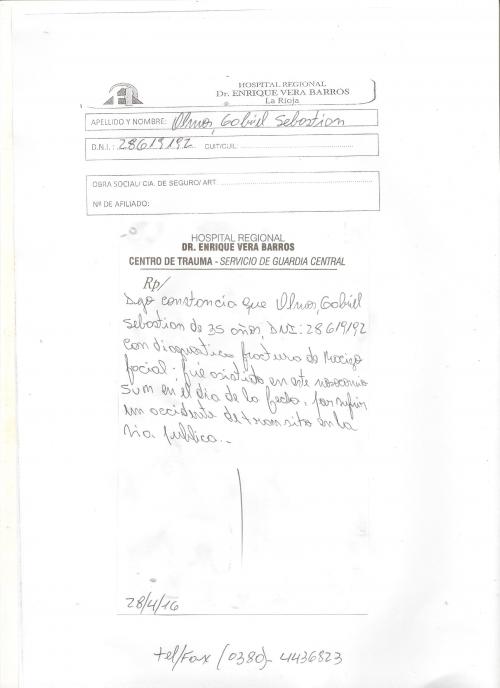 HOSPITAL REGIONAL
Dr. ENRIQUE VERA BARROS
La Rioja
APELLIDO Y NOMBRE: Olmos, Gabriel Sebastian
D.N.I.: 28619192 CUIT/CUIL:
OBRA SOCIAL/ CIA. DE SEGURO/ ART.
Nº DE AFILIADO:
HOSPITAL REGIONAL
DR. ENRIQUE VERA BARROS
CENTRO DE TRAUMA - SERVICIO DE GUARDIA CENTRAL
Rp/
Dejo constancia que Olmos, Gabriel
Sebastian de 35 años, DNI: 28619192
con diagnostico fractura de Macizo
facial; fue asistido en este nosocomio
en el dia de la fecha, por sufrir
un accidente de transito en la
via publica.-
28/4/16
tel/Fax (0380)- 4436823